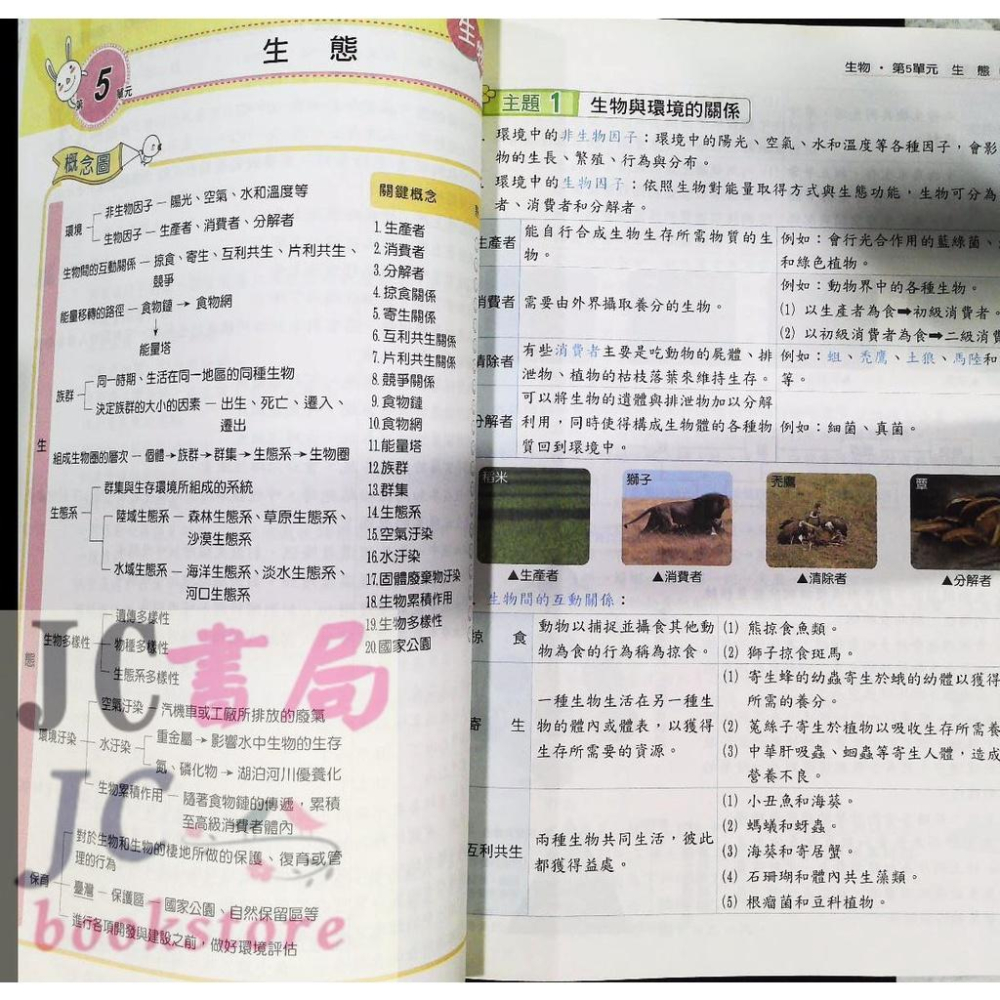 生態
第5單元
生物
概念圖
生態
環境
非生物因子 — 陽光、空氣、水和溫度等
生物因子 — 生產者、消費者、分解者
生物間的互動關係 — 掠食、寄生、互利共生、片利共生、
競爭
能量移轉的路徑 — 食物鏈 → 食物網
↓
能量塔
族群
同一時期、生活在同一地區的同種生物
決定族群的大小的因素 — 出生、死亡、遷入、
遷出
組成生物圈的層次 — 個體→族群→群集→生態系→生物圈
生態系
群集與生存環境所組成的系統
陸域生態系 — 森林生態系、草原生態系、
沙漠生態系
水域生態系 — 海洋生態系、淡水生態系、
河口生態系
生物多樣性
遺傳多樣性
物種多樣性
生態系多樣性
環境汙染
空氣汙染 — 汽機車或工廠所排放的廢氣
水汙染
重金屬 → 影響水中生物的生存
氮、磷化物 → 湖泊河川優養化
生物累積作用 — 隨著食物鏈的傳遞，累積
至高級消費者體內
保育
對於生物和生物的棲地所做的保護、復育或管
理的行為
臺灣 — 保護區 — 國家公園、自然保留區等
進行各項開發與建設之前，做好環境評估
關鍵概念
1.生產者
2.消費者
3.分解者
4.掠食關係
5.寄生關係
6.互利共生關係
7.片利共生關係
8.競爭關係
9.食物鏈
10.食物網
11.能量塔
12.族群
13.群集
14.生態系
15.空氣汙染
16.水汙染
17.固體廢棄物汙染
18.生物累積作用
19.生物多樣性
20.國家公園
JC書局
JC
bookstore
生物・第5單元 生 態
主題 1 生物與環境的關係
環境中的非生物因子：環境中的陽光、空氣、水和溫度等各種因子，會影
物的生長、繁殖、行為與分布。
環境中的生物因子：依照生物對能量取得方式與生態功能，生物可分為
者、消費者和分解者。
生產者
能自行合成生物生存所需物質的生
物。
例如：會行光合作用的藍綠菌、
和綠色植物。
消費者
需要由外界攝取養分的生物。
例如：動物界中的各種生物。
(1) 以生產者為食➡初級消費者。
(2) 以初級消費者為食➡二級消費
清除者
有些消費者主要是吃動物的屍體、排
泄物、植物的枯枝落葉來維持生存。
例如：蛆、禿鷹、土狼、馬陸和
等。
分解者
可以將生物的遺體與排泄物加以分解
利用，同時使得構成生物體的各種物
質回到環境中。
例如：細菌、真菌。
稻米
獅子
禿鷹
蕈
▲生產者
▲消費者
▲清除者
▲分解者
生物間的互動關係：
掠食
動物以捕捉並攝食其他動
物為食的行為稱為掠食。
(1) 熊掠食魚類。
(2) 獅子掠食斑馬。
寄生
一種生物生活在另一種生
物的體內或體表，以獲得
生存所需要的資源。
(1) 寄生蜂的幼蟲寄生於蛾的幼體以獲得
所需的養分。
(2) 菟絲子寄生於植物以吸收生存所需養
(3) 中華肝吸蟲、蛔蟲等寄生人體，造成
營養不良。
互利共生
兩種生物共同生活，彼此
都獲得益處。
(1) 小丑魚和海葵。
(2) 螞蟻和蚜蟲。
(3) 海葵和寄居蟹。
(4) 石珊瑚和體內共生藻類。
(5) 根瘤菌和豆科植物。